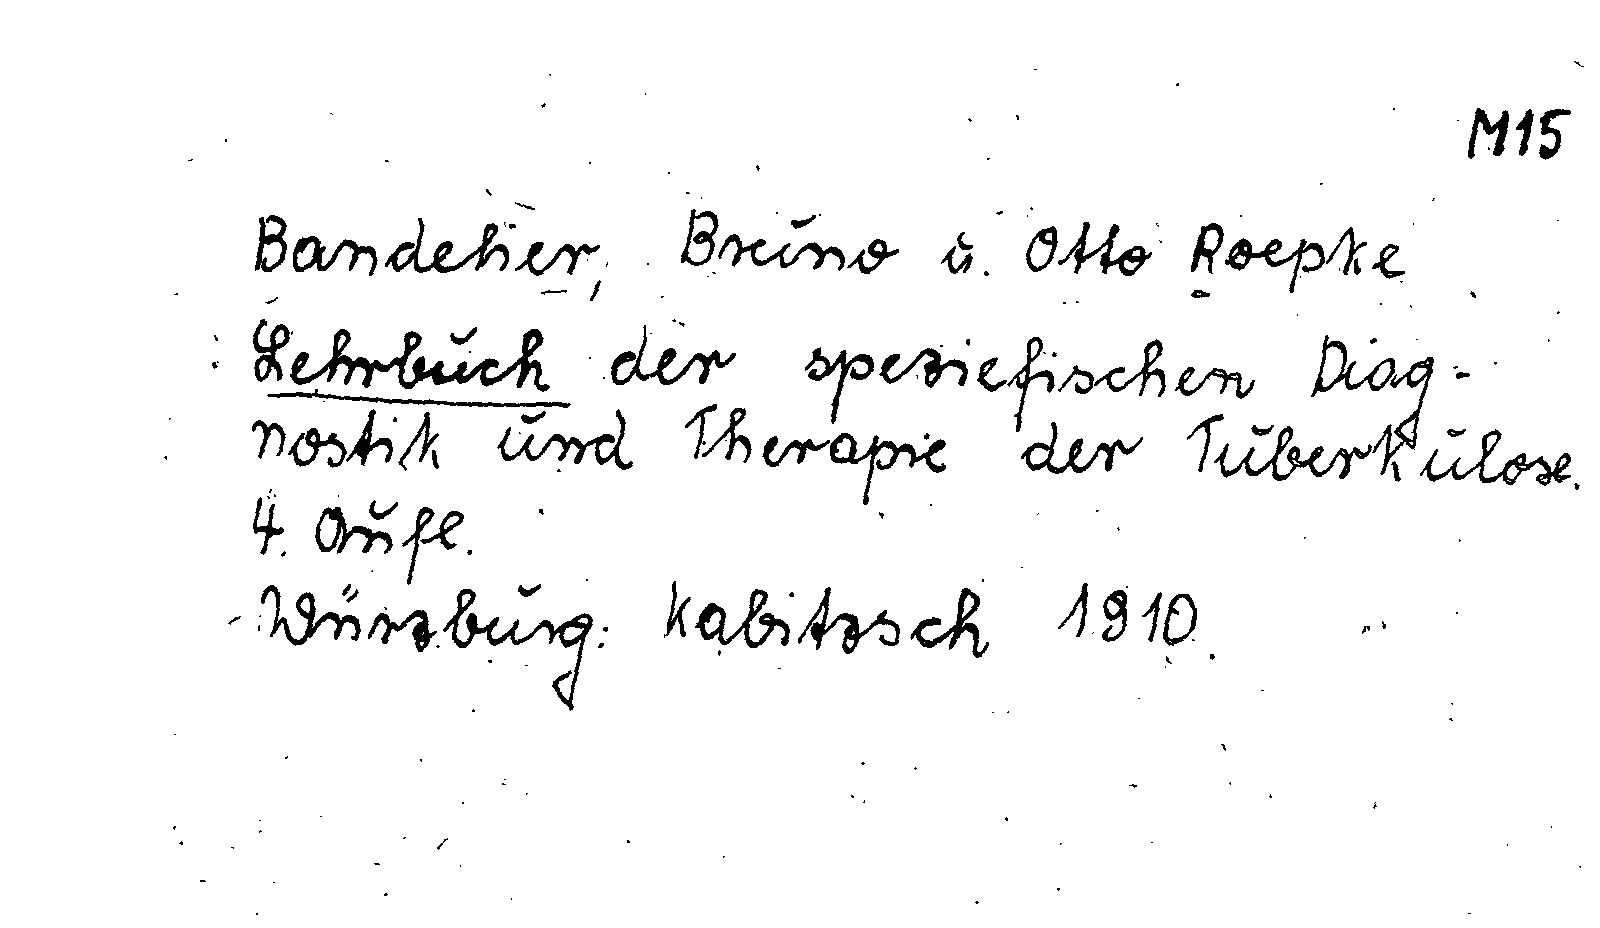 M15
Bandelier, Bruno u. Otto Roepke
Lehrbuch der speziefischen Diag-
nostik und Therapie der Tuberkulose.
4. Aufl.
Würzburg: Kabitzsch 1910.